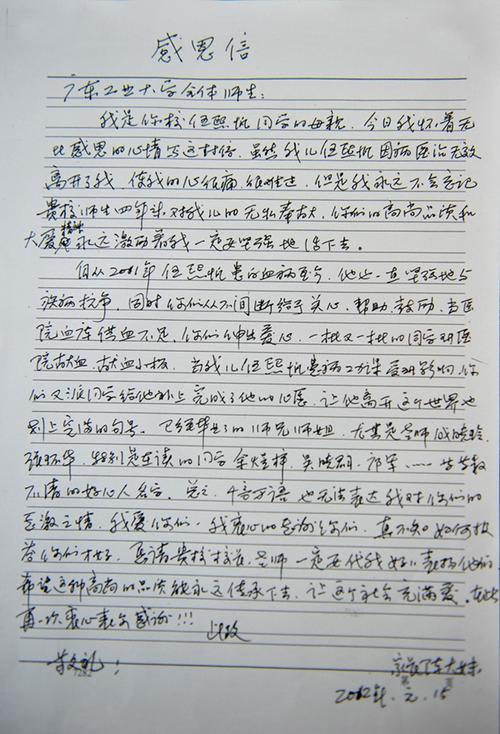 感恩信
广东工业大学全体师生：
我是你校伍熙帆同学的母亲，今日我怀着无
比感恩的心情写这封信，虽然我儿伍熙帆因病医治无效
离开了我，使我的心很痛，很难过，但是我永远不会忘记
贵校师生四年来对我儿的无私奉献，你们的高尚品德和
大爱精神永远激励着我一定要坚强地活下去。
自从2001年伍熙帆患白血病至今，他一直坚强地与
疾病抗争，同时你们从不间断给予关心，帮助，鼓励，当医
院血库供血不足，你们伸出爱心，一批又一批的同学到医
院献血，献血小板，当我儿伍熙帆患病工科受到影响，你
们又派同学给他补上完成了他的心愿，让他离开这个世界也
划上完满的句号。已经毕业了的师兄师姐，尤其是老师
张环华，特别是在读的同学 吴晓丽，邓军……等等数
不清的好心人名字。总之，千言万语也无法表达我对你们的
感激之情，我爱你们，我衷心的感谢你们，真不知如何报
答你们才好，恳请贵校校长，老师一定要代我好好表扬他们
希望这种高尚的品质能永远传承下去，让这个社会充满爱。在此
再一次衷心表示感谢!!!
此致
敬礼！
家长
2012年.元.15